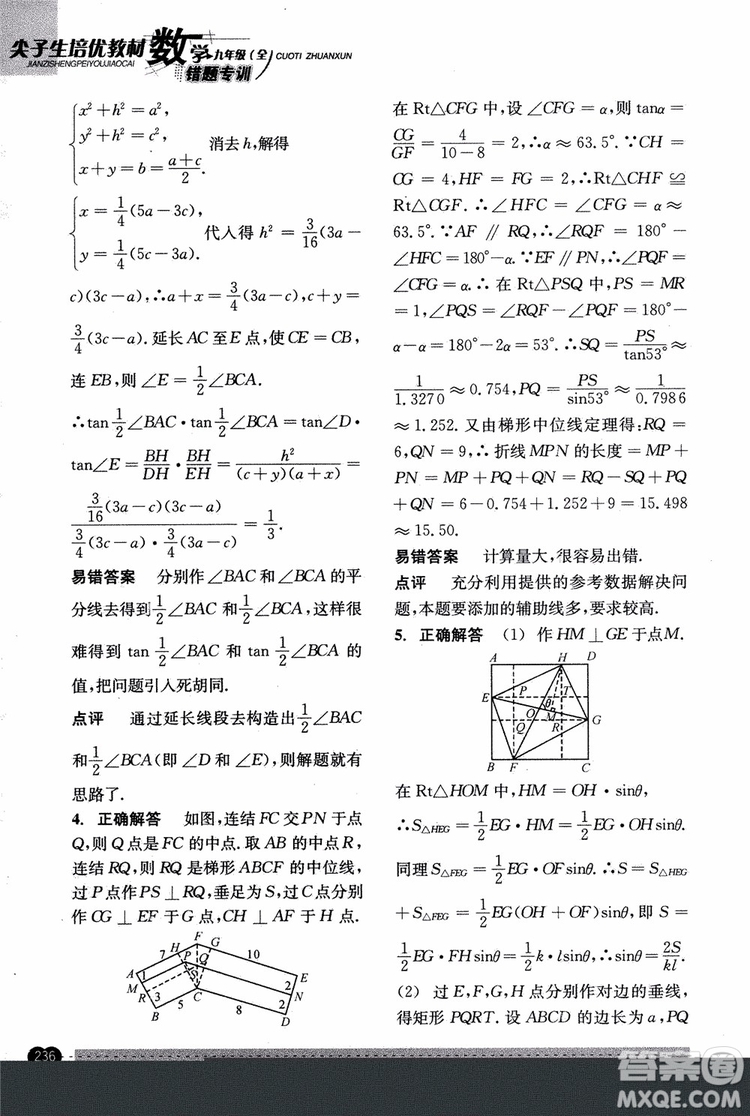 尖子生培优教材 数学 九年级(全) CUOTI ZHUANXUN
JIANZISHENGPEIYOUJIAOCAI 错题专训
x²+h²=a²,
y²+h²=c²,
x+y=b=(a+c)/2.
消去h,解得
x=1/4(5a-3c),
y=1/4(5c-3a).
代人得 h²=3/16(3a-
c)(3c-a),∴a+x=3/4(3a-c),c+y=
3/4(3c-a).延长AC至E点,使CE=CB,
连EB,则∠E=1/2∠BCA.
∴tan1/2∠BAC·tan1/2∠BCA=tan∠D·
tan∠E=BH/DH·BH/EH=h²/((c+y)(a+x))=
(3/16(3a-c)(3c-a))/(3/4(3c-a)·3/4(3a-c))=1/3.
易错答案 分别作∠BAC和∠BCA的平
分线去得到1/2∠BAC和1/2∠BCA,这样很
难得到tan 1/2∠BAC和tan 1/2∠BCA的
值,把问题引入死胡同.
点评 通过延长线段去构造出1/2∠BAC
和1/2∠BCA(即∠D和∠E),解题就有
思路了.
4. 正确解答 如图,连结FC交PN于点
Q,则Q点是FC的中点.取AB的中点R,
连结RQ,则RQ是梯形ABCF的中位线,
过P点作PS⊥RQ,垂足为S,过C点分别
作CG⊥EF于G点,CH⊥AF于H点.
F
H G
7 P Q 10
A 1 S E
M 2 N
R 3 C 2
B 5 8 D
在Rt△CFG中,设∠CFG=α,则tanα=
CG/GF=4/(10-8)=2,∴α≈63.5°.∵CH=
CG=4,HF=FG=2,∴Rt△CHF≌
Rt△CGF.∴∠HFC=∠CFG=α≈
63.5°.∵AF∥RQ,∴∠RQF=180°-
∠HFC=180°-α.∵EF∥PN,∴∠PQF=
∠CFG=α.∴在Rt△PSQ中,PS=MR
=1,∠PQS=∠RQF-∠PQF=180°-
α-α=180°-2α=53°.∴SQ=PS/tan53°≈
1/1.3270≈0.754,PQ=PS/sin53°≈1/0.7986
≈1.252.又由梯形中位线定理得:RQ=
6,QN=9,∴折线MPN的长度=MP+
PN=MP+PQ+QN=RQ-SQ+PQ
+QN=6-0.754+1.252+9=15.498
≈15.50.
易错答案 计算量大,很容易出错.
点评 充分利用提供的参考数据解决问
题,本题要添加的辅助线多,要求较高.
5. 正确解答 (1) 作HM⊥GE于点M.
A H D
E P T
O θ M G
Q R
B F C
在Rt△HOM中,HM=OH·sinθ,
∴S△HEG=1/2EG·HM=1/2EG·OHsinθ.
同理S△FEG=1/2EG·OFsinθ,∴S=S△HEG
+S△FEG=1/2EG(OH+OF)sinθ,即S=
1/2EG·FHsinθ=1/2k·lsinθ,∴sinθ=2S/kl.
(2) 过E,F,G,H点分别作对边的垂线,
得矩形PQRT.设ABCD的边长为a,PQ
236
答案圈
MXQE.COM